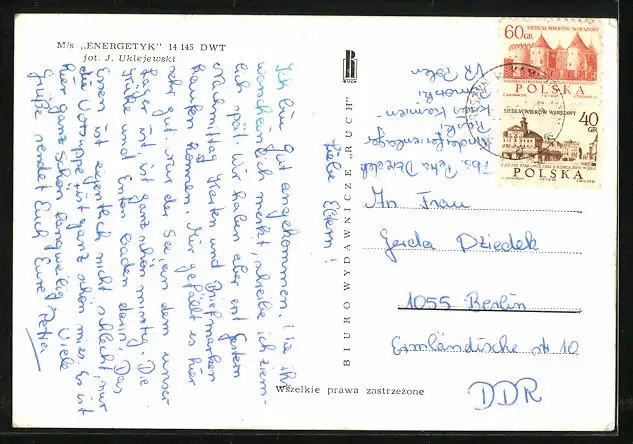 M/s „ENERGETYK" 14 145 DWT
fot. J. Uklejewski
Liebe Eltern!
Ich bin gut angekommen. Wie ihr
wahrscheinlich merkt, schreibe ich ziem-
lich spät. Wir haben aber erst gestern
Nachmittag Karten und Briefmarken
kaufen können. Mir gefällt es hier
sehr gut, nur der See, an dem unser
Lager ist, ist ganz schön mistig. Die
Kühe und Enten baden darin. Das
Essen ist eigentlich nicht schlecht, nur
die Vorsuppe ist ganz schön mies. Es ist
hier ganz schön langweilig. Viele
Grüße sendet Euch Eure Petra
RUCH
BIURO WYDAWNICZE „RUCH"
Wszelkie prawa zastrzeżone
Abs. Petra Dziedek
Kinderferienlager
Kamień
VR Polen
60 GR
SIEDEM WIEKÓW WARSZAWY
POLSKA
SIEDEM WIEKÓW WARSZAWY
40 GR
POLSKA
An Frau
Gerda Dziedek
1055 Berlin
Ermländische Str. 10
DDR